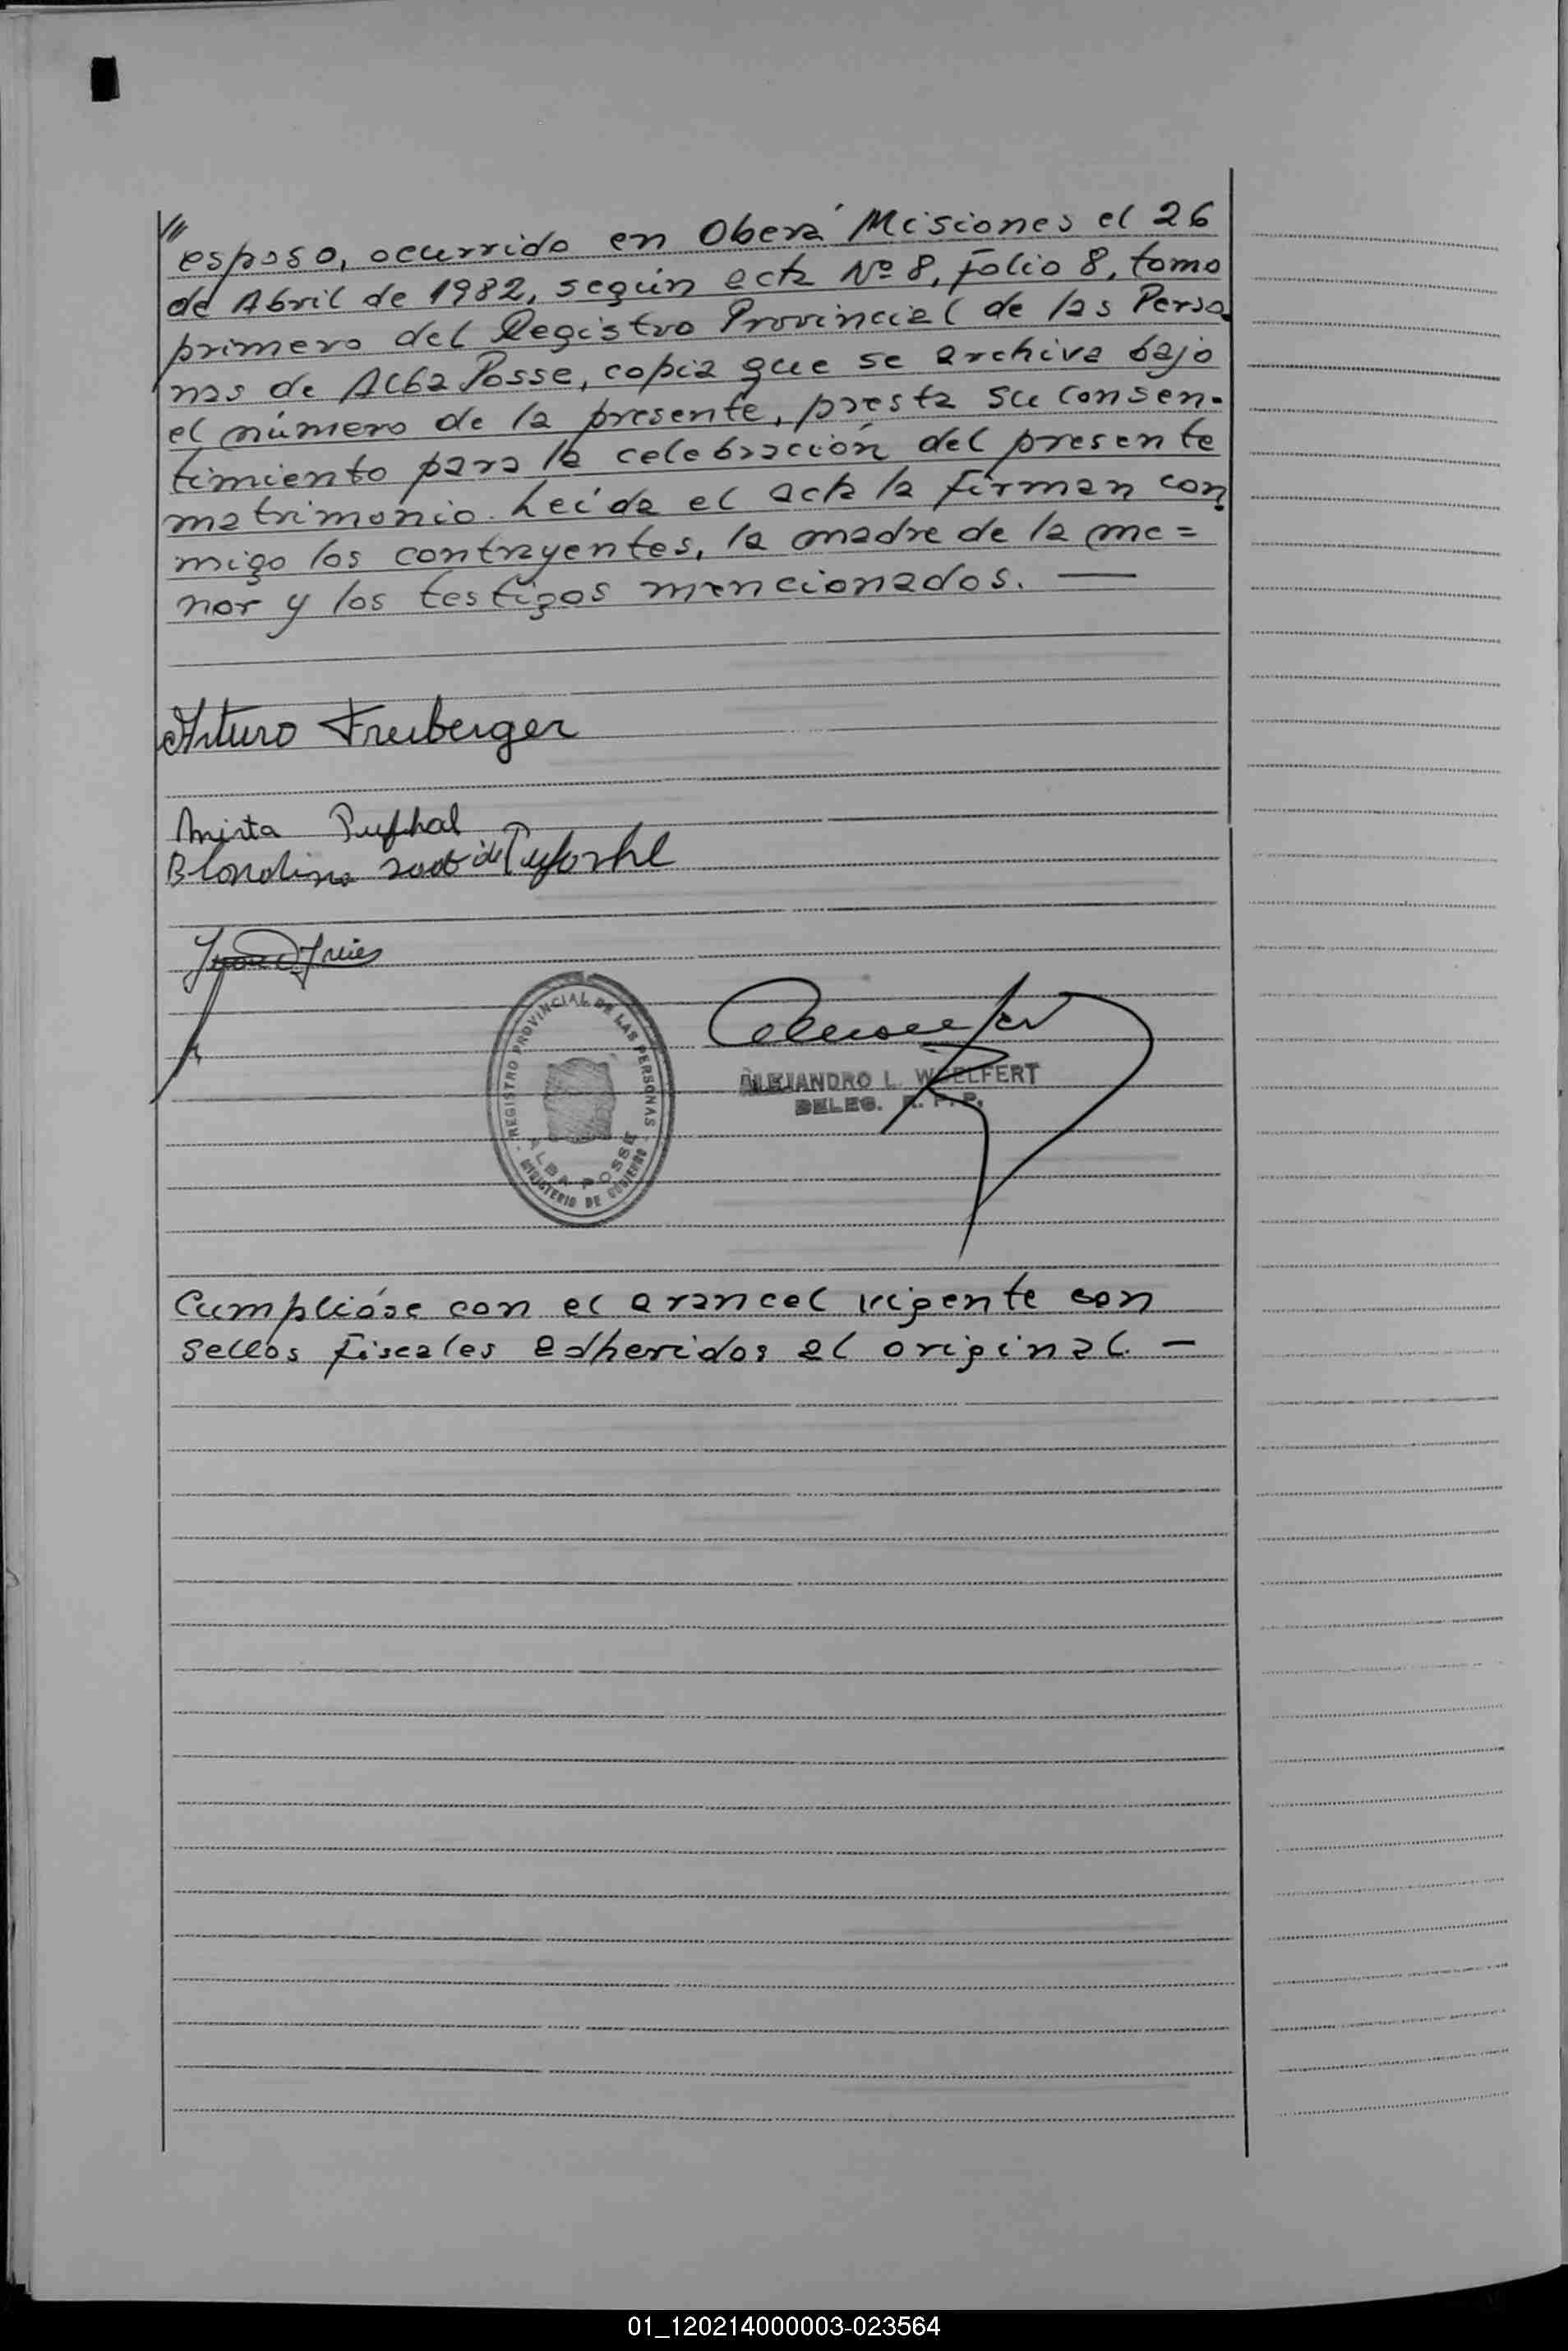 // esposo, ocurrido en Oberá Misiones el 26
de Abril de 1982, según acta Nº 8, folio 8, tomo
primero del Registro Provincial de las Perso-
nas de Alba Posse, copia que se archiva bajo
el número de la presente, presta su consen-
timiento para la celebración del presente
matrimonio. Leída el acta la firman con-
migo los contrayentes, la madre de la me=
nor y los testigos mencionados. —
Arturo Freiberger
Mirta Pufhal
Blondina de
REGISTRO PROVINCIAL DE LAS PERSONAS
ALBA POSSE
MINISTERIO DE GOBIERNO
ALEJANDRO L. WOELFERT
DELEG. R. P. P.
Cumplióse con el arancel vigente con
sellos fiscales adheridos al original. —
01_120214000003-023564